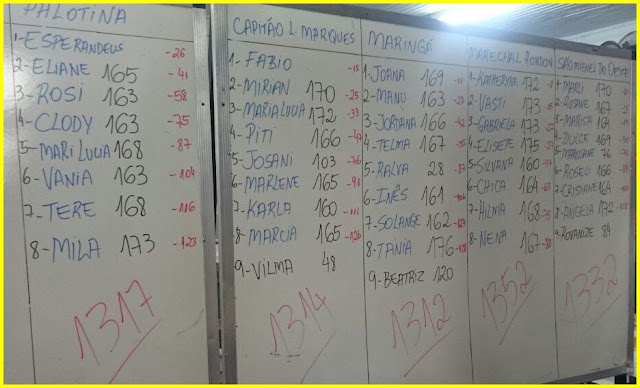 PALOTINA
1-ESPERANDEUS -26
2-ELIANE 165 -41
3-ROSI 163 -58
4-CLODY 163 -75
5-MARI LUCIA 168 -87
6-VANIA 163 -104
7-TERE 168 -116
8-MILA 173 -123
1317
CAPITÃO L. MARQUES
1-FABIO -15
2-MIRIAN 170 -25
3-MARIA LUCIA 172 -33
4-PITI 166 -47
5-JOSANI 103 -76
6-MARLENE 165 -91
7-KARLA 160 -111
8-MARCIA 165 -126
9-VILMA 48
1314
MARINGÁ
1-JOANA 169 -11
2-MANU 163 -28
3-JORDANA 166 -42
4-TELMA 167 -55
5-RALVA 28
6-INÊS 161
7-SOLANGE 162
8-TANIA 176
9-BEATRIZ 120
1312
MARECHAL RONDON
1-KATHERYNE 172
2-VASTI 173
3-GABRIELA 173
4-ELISETE 175
5-SILVANA 160
6-CHICA 164
7-HILMA 168
8-NENA 167
1352
SÃO MIGUEL DO OESTE
1-MARLI 170
2-ROSANE 167
3-MARISA 164
4-DULCE 169
5-MARCIANE 76
6-ROSELI 166
7-CRISTIANE 164
8-ANGELA 172
9-ROVANIZE 84
1332